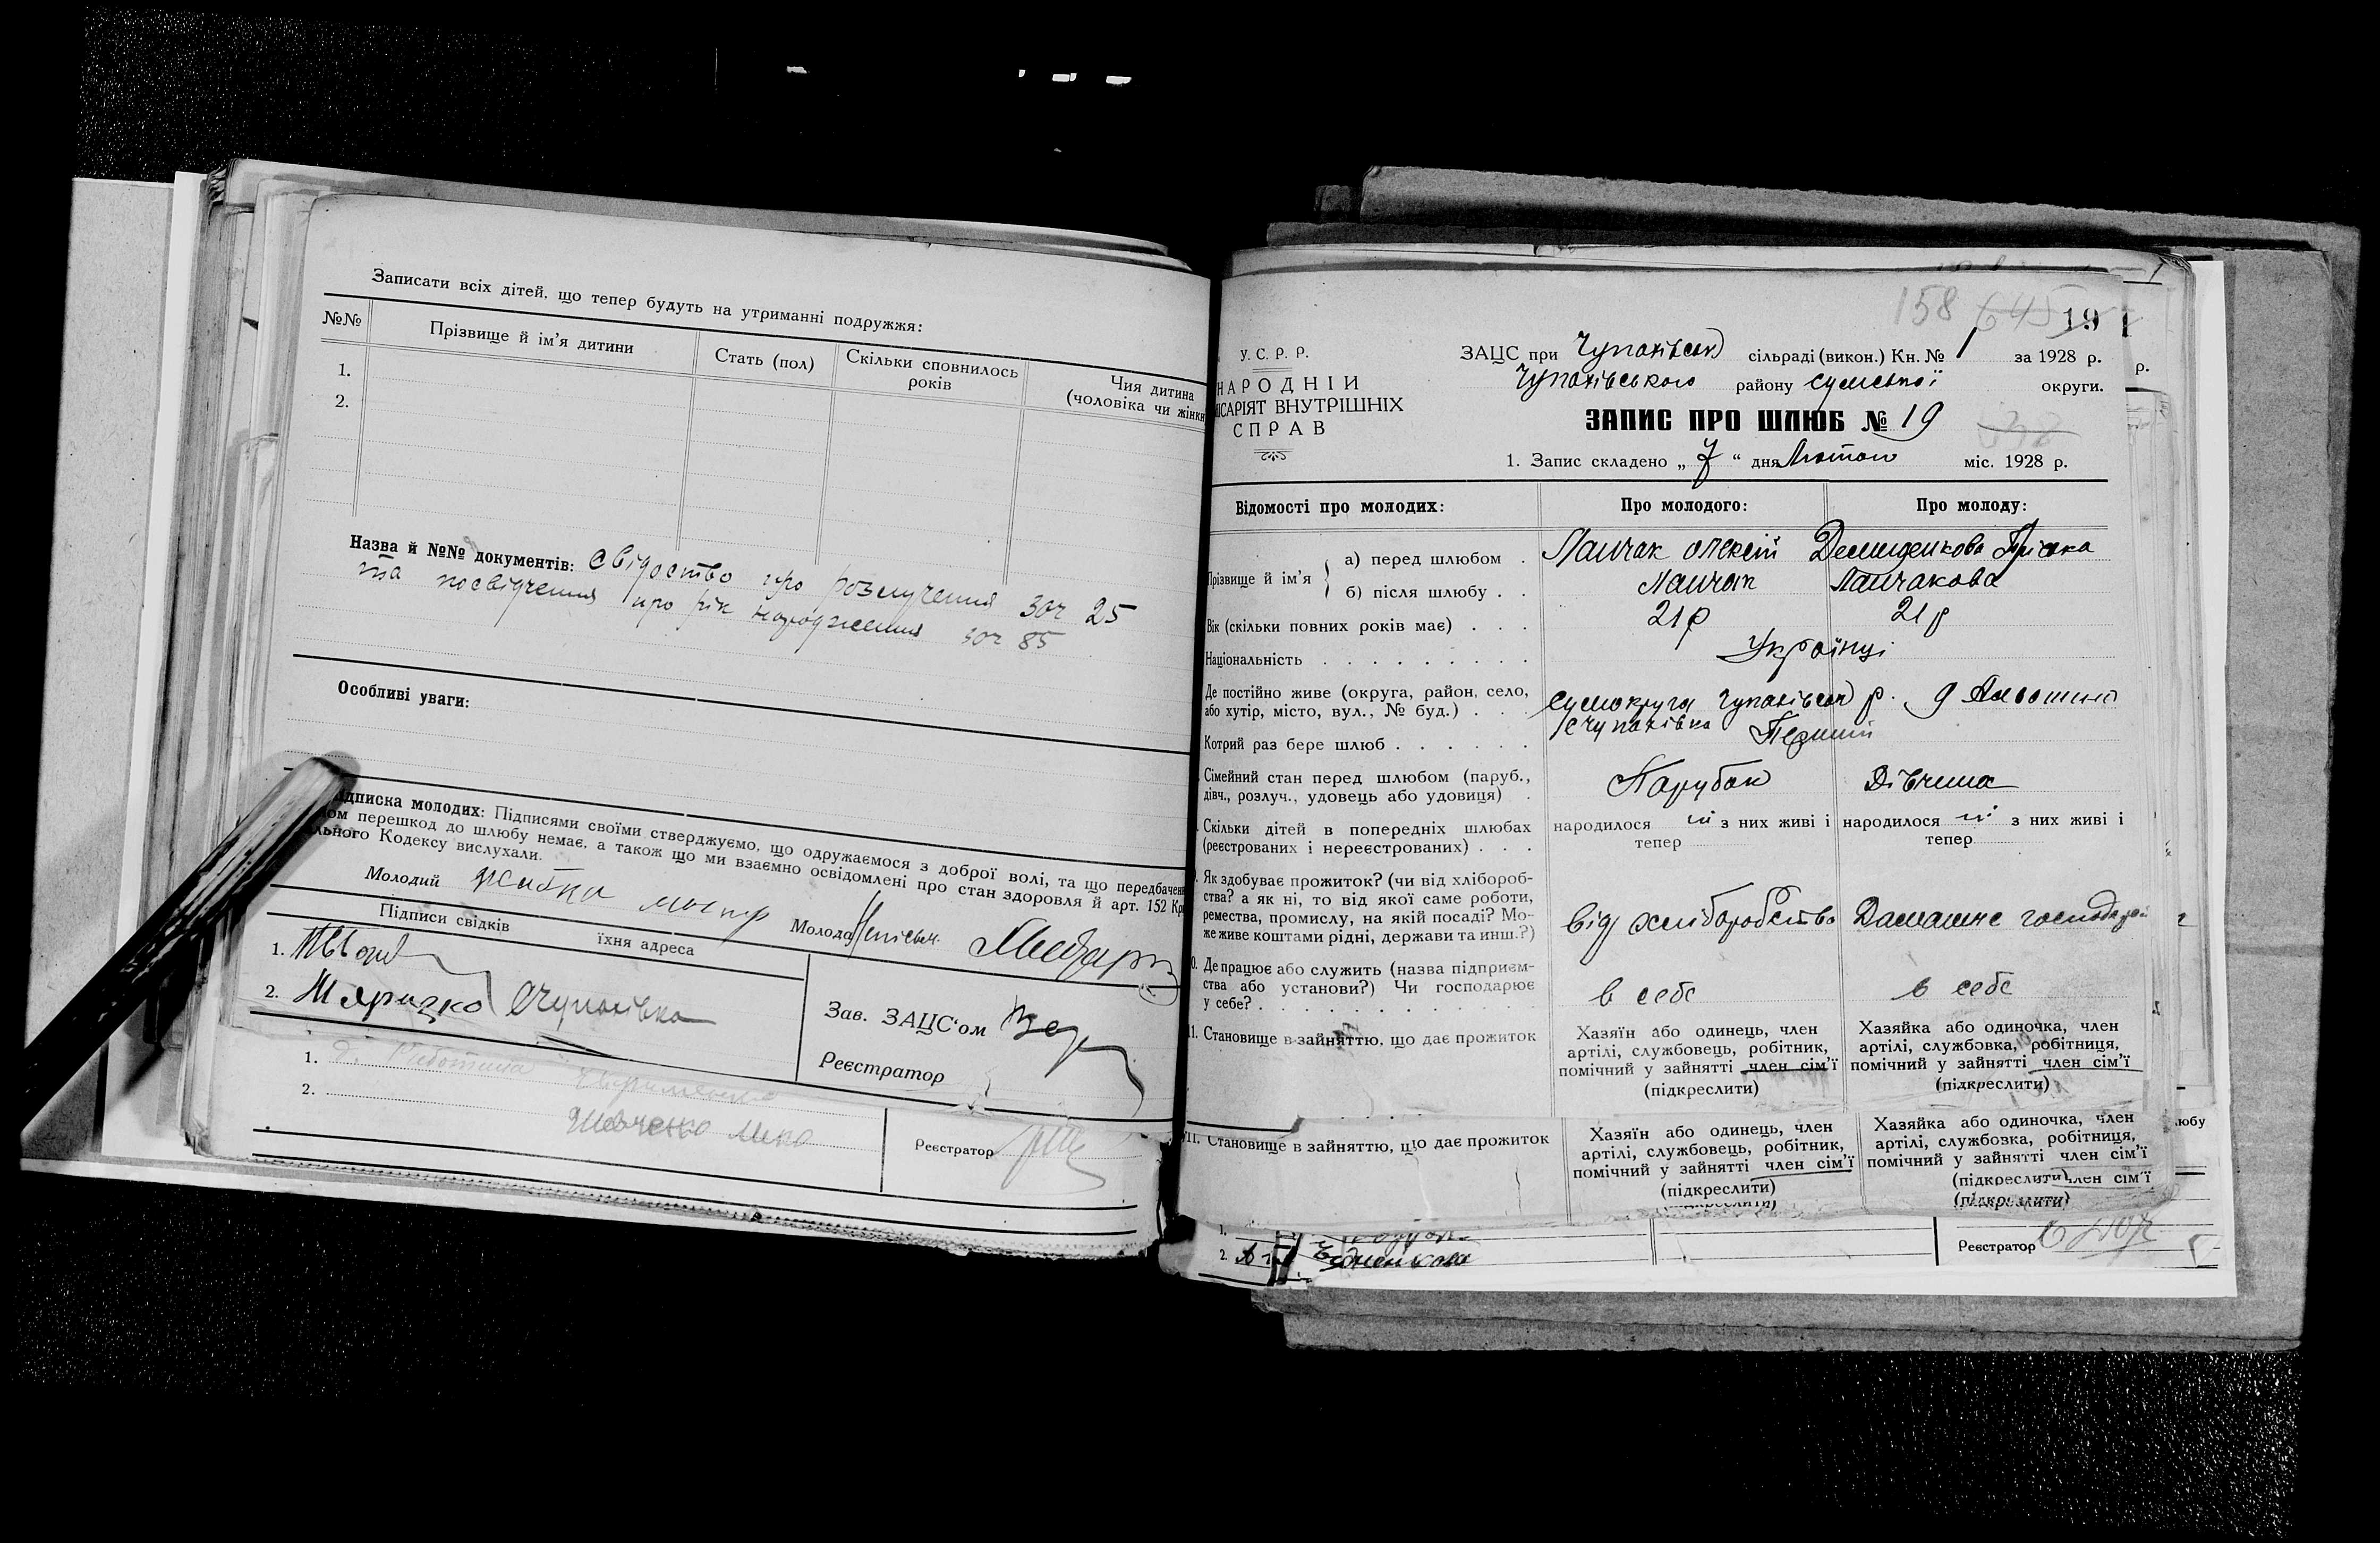 Записати всіх дітей, що тепер будуть на утриманні подружжя:
№№ Прізвище й ім'я дитини Стать (пол) Скільки сповнилось років Чия дитина (чоловіка чи жінки
1.
2.
Назва й №№ документів: Свідоство про розлучення за № 25
та посвідчення про рік народження за № 85
Особливі уваги:
дписка молодих: Підписями своїми стверджуємо, що одружаємося з доброї волі, та що передбачен
ом перешкод до шлюбу немає, а також що ми взаємно освідомлені про стан здоровля й арт. 152 Кр
льного Кодексу вислухали.
Молодий Молода
Підписи свідків їхня адреса
1.
2. С Чупахівка
Зав. ЗАЦС'ом
Реєстратор
1.
2. Шевченко
Реєстратор
158 645 19
У.С.Р.Р.
НАРОДНІЙ
ІСАРІЯТ ВНУТРІШНІХ
СПРАВ
ЗАЦС при Чупахівськ сільраді (викон.) Кн. № 1 за 1928 р.
Чупахівського району Сумської округи.
ЗАПИС ПРО ШЛЮБ № 19
1. Запис складено „ 7 “ дня Лютого міс. 1928 р.
Відомості про молодих: Про молодого: Про молоду:
Прізвище й ім'я
а) перед шлюбом . Олексій Демиденкова Пріська
б) після шлюбу . .
Вік (скільки повних років має) . . . 21 р 21 р
Національність . . . . . . . . . Українці
Де постійно живе (округа, район, село,
або хутір, місто, вул., № буд.) . . . Сумокруга Чупахівськ р.
с Чупахівка
Котрий раз бере шлюб . . . . . . Перший
Сімейний стан перед шлюбом (паруб.,
дівч., розлуч., удовець або удовиця) . Парубок Дівчина
Скільки дітей в попередніх шлюбах
(реєстрованих і нереєстрованих) . . .
народилося ні з них живі і тепер
народилося ні з них живі і тепер
Як здобуває прожиток? (чи від хлібороб-
ства? а як ні, то від якої саме роботи,
ремества, промислу, на якій посаді? Мо-
же живе коштами рідні, держави та инш.?)
від хліборобства Домашне
0. Де працює або служить (назва підприєм-
ства або установи?) Чи господарює
у себе? . . . . . . . . . . . в себе в себе
11. Становище в зайняттю, що дає прожиток
Хазяїн або одинець, член
артілі, службовець, робітник,
помічний у зайнятті член сім'ї
(підкреслити)
Хазяйка або одиночка, член
артілі, службовка, робітниця,
помічний у зайнятті член сім'ї
(підкреслити)
11. Становище в зайняттю, що дає прожиток
Хазяїн або одинець, член
артілі, службовець, робітник,
помічний у зайнятті член сім'ї
(підкреслити)
Хазяйка або одиночка, член
артілі, службовка, робітниця,
помічний у зайнятті член сім'ї
(підкреслити) член сім'ї
(підкреслити)
1.
2.
Реєстратор